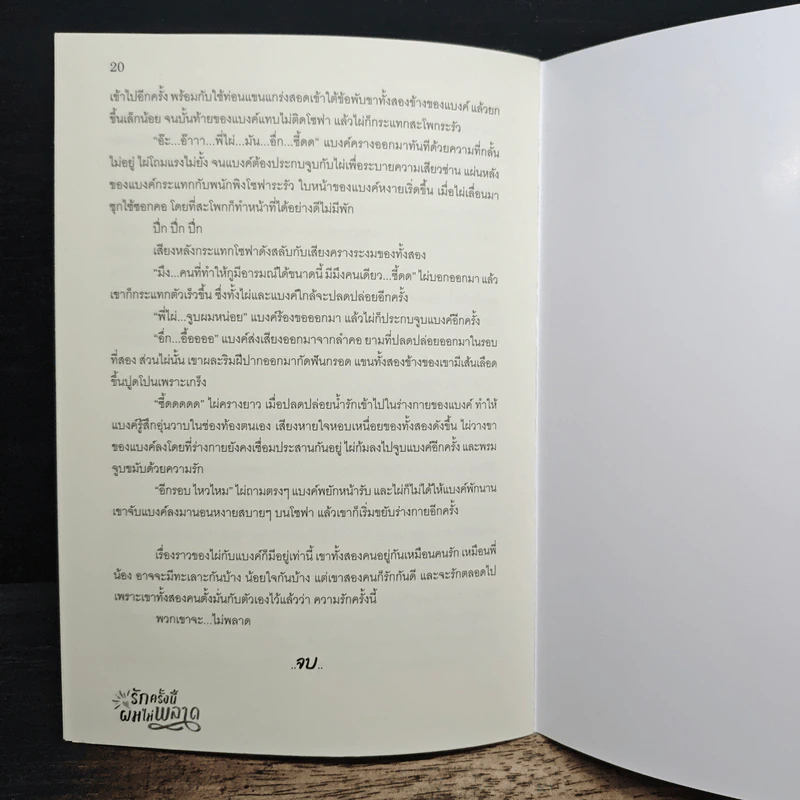 20
เข้าไปอีกครั้ง พร้อมกับใช้ท่อนแขนแกร่งสอดเข้าใต้ข้อพับขาทั้งสองข้างของแบงค์ แล้วยก
ขึ้นเล็กน้อย จนบั้นท้ายของแบงค์แทบไม่ติดโซฟา แล้วไผ่ก็กระแทกสะโพกระรัว
“อ๊ะ...อ๊าาา...พี่ไผ่...มัน...อื่ก...ซี้ดด” แบงค์ครางออกมาทันทีด้วยความที่กลั้น
ไม่อยู่ ไผ่โถมแรงไม่ยั้ง จนแบงค์ต้องประกบจูบกับไผ่เพื่อระบายความเสียวซ่าน แผ่นหลัง
ของแบงค์กระแทกกับพนักพิงโซฟาระรัว ใบหน้าของแบงค์หงายเริ่ดขึ้น เมื่อไผ่เลื่อนมา
ซุกไซ้ซอกคอ โดยที่สะโพกก็ทำหน้าที่ได้อย่างดีไม่มีพัก
ปึก ปึก ปึก
เสียงหลังกระแทกโซฟาดังสลับกับเสียงครางระงมของทั้งสอง
“มึง...คนที่ทำให้กูมีอารมณ์ได้ขนาดนี้ มีมึงคนเดียว...ซี้ดด” ไผ่บอกออกมา แล้ว
เขาก็กระแทกตัวเร็วขึ้น ซึ่งทั้งไผ่และแบงค์ใกล้จะปลดปล่อยอีกครั้ง
“พี่ไผ่...จูบผมหน่อย” แบงค์ร้องขอออกมา แล้วไผ่ก็ประกบจูบแบงค์อีกครั้ง
“อื่ก...อื้ออออ” แบงค์ส่งเสียงออกมาจากลำคอ ยามที่ปลดปล่อยออกมาในรอบ
ที่สอง ส่วนไผ่นั้น เขาผละริมฝีปากออกมากัดฟันกรอด แขนทั้งสองข้างของเขามีเส้นเลือด
ขึ้นปูดโปนเพราะเกร็ง
“ซี้ดดดดด” ไผ่ครางยาว เมื่อปลดปล่อยน้ำรักเข้าไปในร่างกายของแบงค์ ทำให้
แบงค์รู้สึกอุ่นวาบในช่องท้องตนเอง เสียงหายใจหอบเหนื่อยของทั้งสองดังขึ้น ไผ่วางขา
ของแบงค์ลงโดยที่ร่างกายยังคงเชื่อมประสานกันอยู่ ไผ่ก้มลงไปจูบแบงค์อีกครั้ง และพรม
จูบขมับด้วยความรัก
“อีกรอบ ไหวไหม” ไผ่ถามตรงๆ แบงค์พยักหน้ารับ และไผ่ก็ไม่ได้ให้แบงค์พักนาน
เขาจับแบงค์ลงมานอนหงายสบายๆ บนโซฟา แล้วเขาก็เริ่มขยับร่างกายอีกครั้ง
เรื่องราวของไผ่กับแบงค์ก็มีอยู่เท่านี้ เขาทั้งสองคนอยู่กันเหมือนคนรัก เหมือนพี่
น้อง อาจจะมีทะเลาะกันบ้าง น้อยใจกันบ้าง แต่เขาสองคนก็รักกันดี และจะรักตลอดไป
เพราะเขาทั้งสองคนตั้งมั่นกับตัวเองไว้แล้วว่า ความรักครั้งนี้
พวกเขาจะ...ไม่พลาด
..จบ..
รักครั้งนี้
ผมไม่พลาด